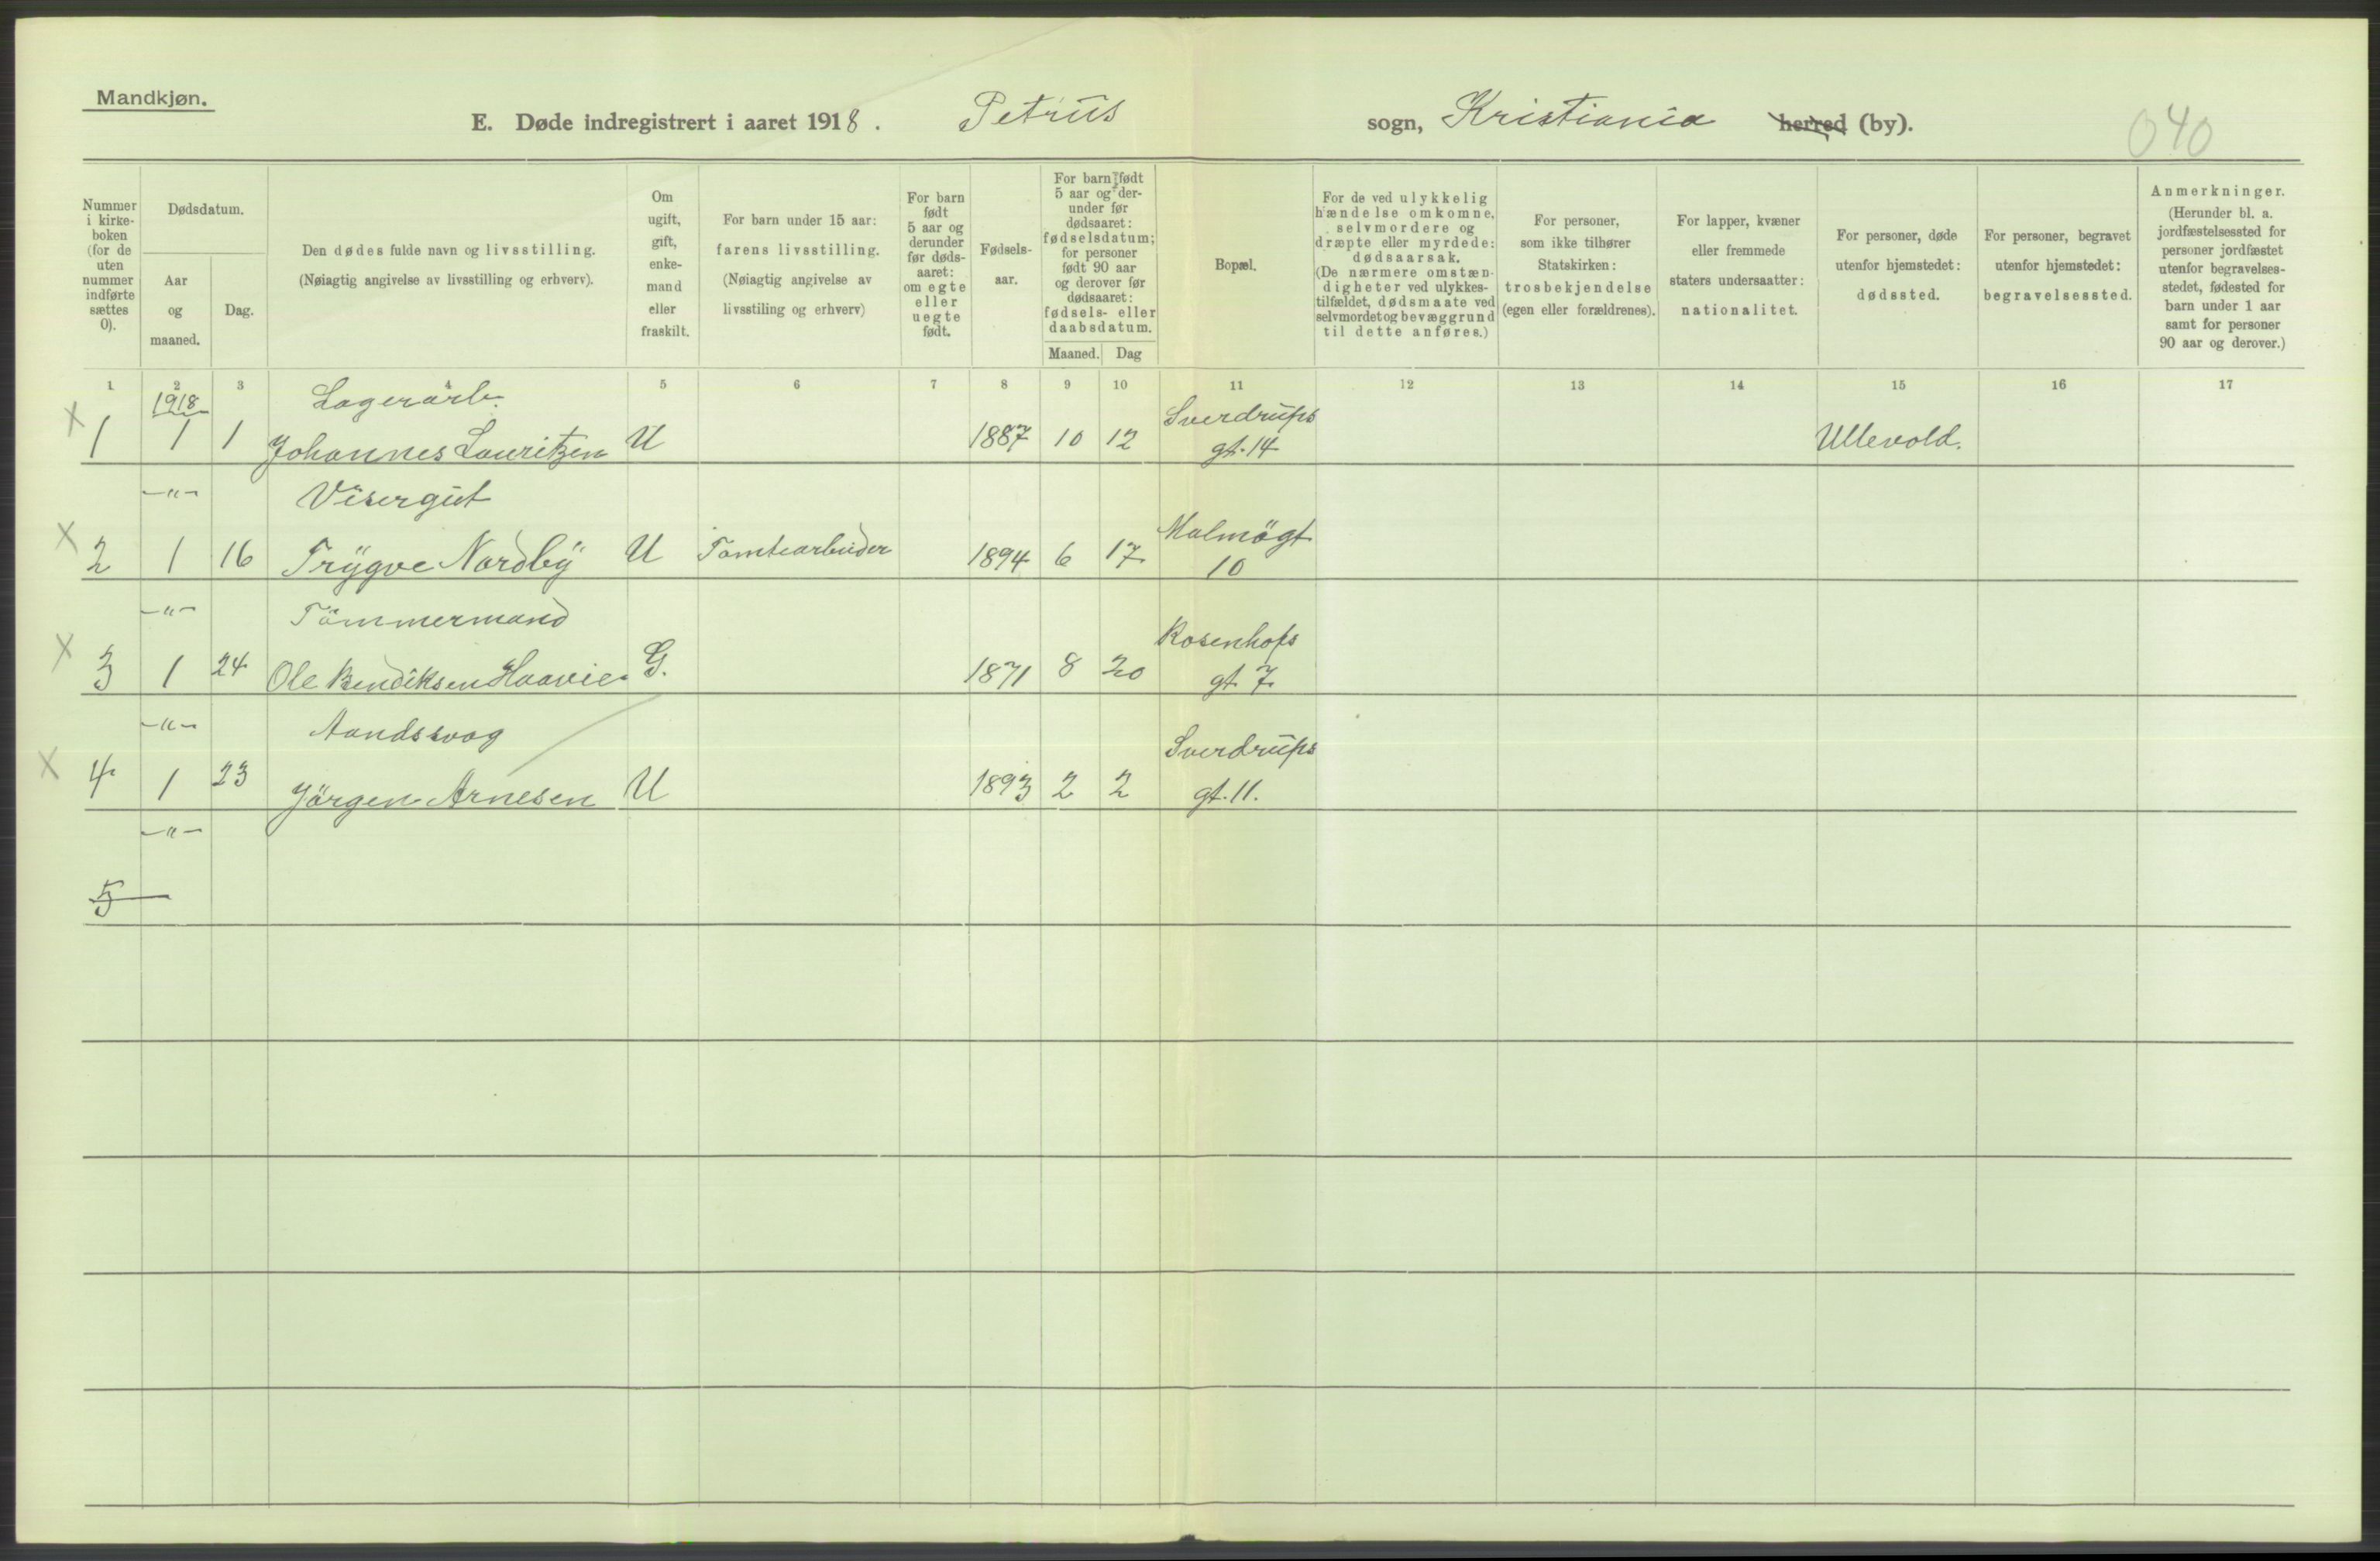 Mandkjøn.
E. Døde indregistrert i aaret 1918. Petrus sogn, Kristiania herred (by).
040
Nummer i kirkeboken (for de uten nummer indførte sættes 0).
Dødsdatum.
Aar og maaned.
Dag.
Den dødes fulde navn og livsstilling.
(Nøiagtig angivelse av livsstilling og erhverv).
Om ugift, gift, enkemand eller fraskilt.
For barn under 15 aar:
farens livsstilling.
(Nøiagtig angivelse av livsstiling og erhverv)
For barn født 5 aar og derunder før dødsaaret: om egte eller uegte født.
Fødselsaar.
For barn født 5 aar og derunder før dødsaaret: fødselsdatum; for personer født 90 aar og derover før dødsaaret: fødsels- eller daabsdatum.
Maaned. Dag
Bopæl.
For de ved ulykkelig hændelse omkomne, selvmordere og dræpte eller myrdede: dødsaarsak.
(De nærmere omstændigheter ved ulykkestilfældet, dødsmaate ved selvmordet og bevæggrund til dette anføres.)
For personer, som ikke tilhører Statskirken: trosbekjendelse (egen eller forældrenes).
For lapper, kvæner eller fremmede staters undersaatter: nationalitet.
For personer, døde utenfor hjemstedet: dødssted.
For personer, begravet utenfor hjemstedet: begravelsessted.
Anmerkninger.
(Herunder bl. a. jordfæstelsessted for personer jordfæstet utenfor begravelsesstedet, fødested for barn under 1 aar samt for personer 90 aar og derover.)
1 2 3 4 5 6 7 8 9 10 11 12 13 14 15 16 17
1918 Lagerarb. Sverdrups
X 1 1 1 Johannes Lauritzen U 1887 10 12 gt. 14 Ullevold.
-"- Visergut Malmögt
X 2 1 16 Trygve Nordby U Tomtearbeider 1894 6 17 10
-"- Tömmermand Rosenhofs
X 3 1 24 Ole Bendiksen Haavie G. 1871 8 20 gt. 7
-"- Aandssvag Sverdrups
X 4 1 23 Jörgen Arnesen U 1893 2 2 gt. 11.
-"-
5